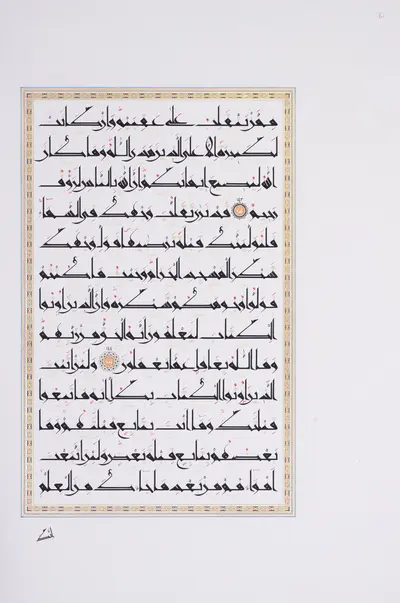 ممن ينقلب على عقبيه وإن كانت
لكبيرة إلا على الذين هدى الله وما كان
الله ليضيع إيمانكم إن الله بالناس لرءوف
رحيم ١٤٣ قد نرى تقلب وجهك في السماء
فلنولينك قبلة ترضاها فول وجهك
شطر المسجد الحرام وحيث ما كنتم
فولوا وجوهكم شطره وإن الذين أوتوا
الكتاب ليعلمون أنه الحق من ربهم
وما الله بغافل عما يعملون ١٤٤ ولئن أتيت
الذين أوتوا الكتاب بكل آية ما تبعوا
قبلتك وما أنت بتابع قبلتهم وما
بعضهم بتابع قبلة بعض ولئن اتبعت
أهواءهم من بعد ما جاءك من العلم
إنك